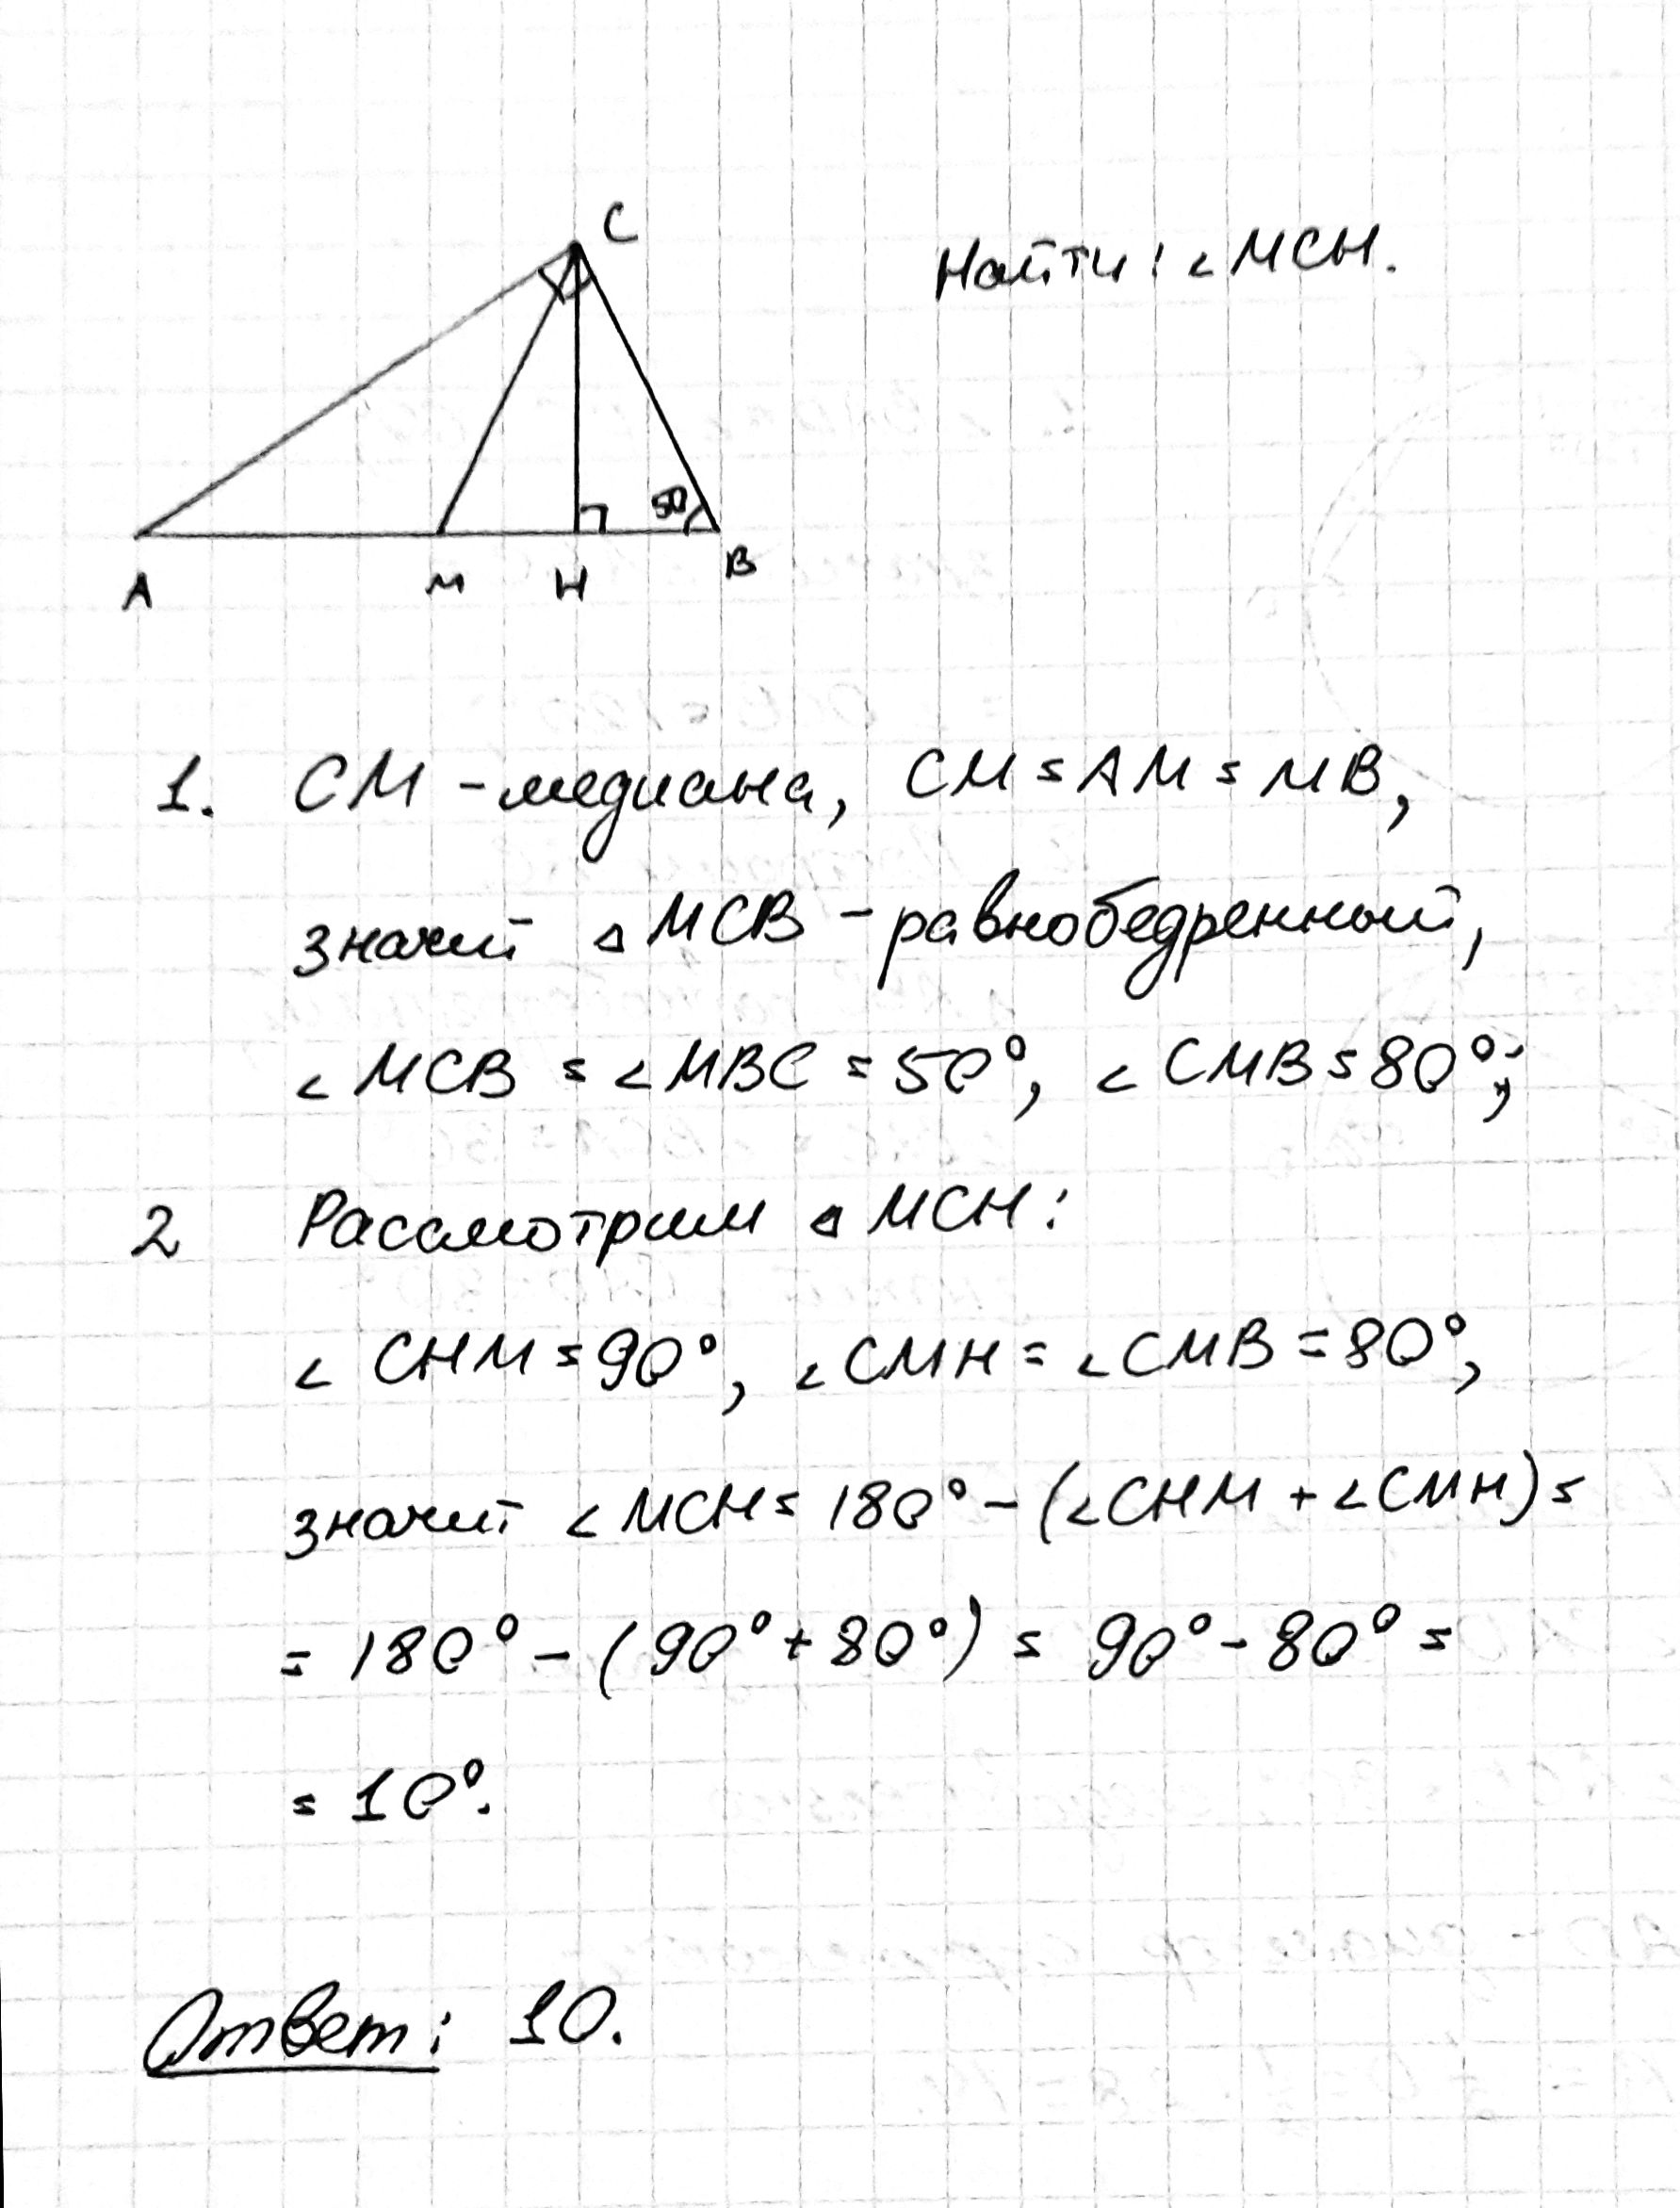 C
Найти: ∠MCH.
50
A M H B
1. CM - медиана, CM = AM = MB,
значит △MCB - равнобедренный,
∠MCB = ∠MBC = 50°, ∠CMB = 80°;
2 Рассмотрим △MCH:
∠CHM = 90°, ∠CMH = ∠CMB = 80°,
значит ∠MCH = 180° - (∠CHM + ∠CMH) =
= 180° - (90° + 80°) = 90° - 80° =
= 10°.
Ответ: 10.